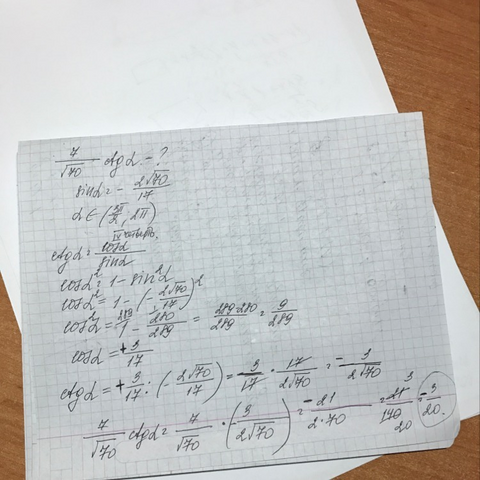 7/√70 ctg α - ?
sin α = - 2√70/17
α ∈ (3π/2; 2π)
IV четверть.
ctg α = cos α/sin α
cos²α = 1 - sin²α
cos²α = 1 - (- 2√70/17)²
cos²α = 1 - 280/289 = 289-280/289 = 9/289
cos α = + 3/17
ctg α = + 3/17 : (- 2√70/17) = - 3/17 · 17/2√70 = - 3/2√70
7/√70 ctg α = 7/√70 · (- 3/2√70) = - 21/2·70 = 21 3/140 20 = - 3/20.